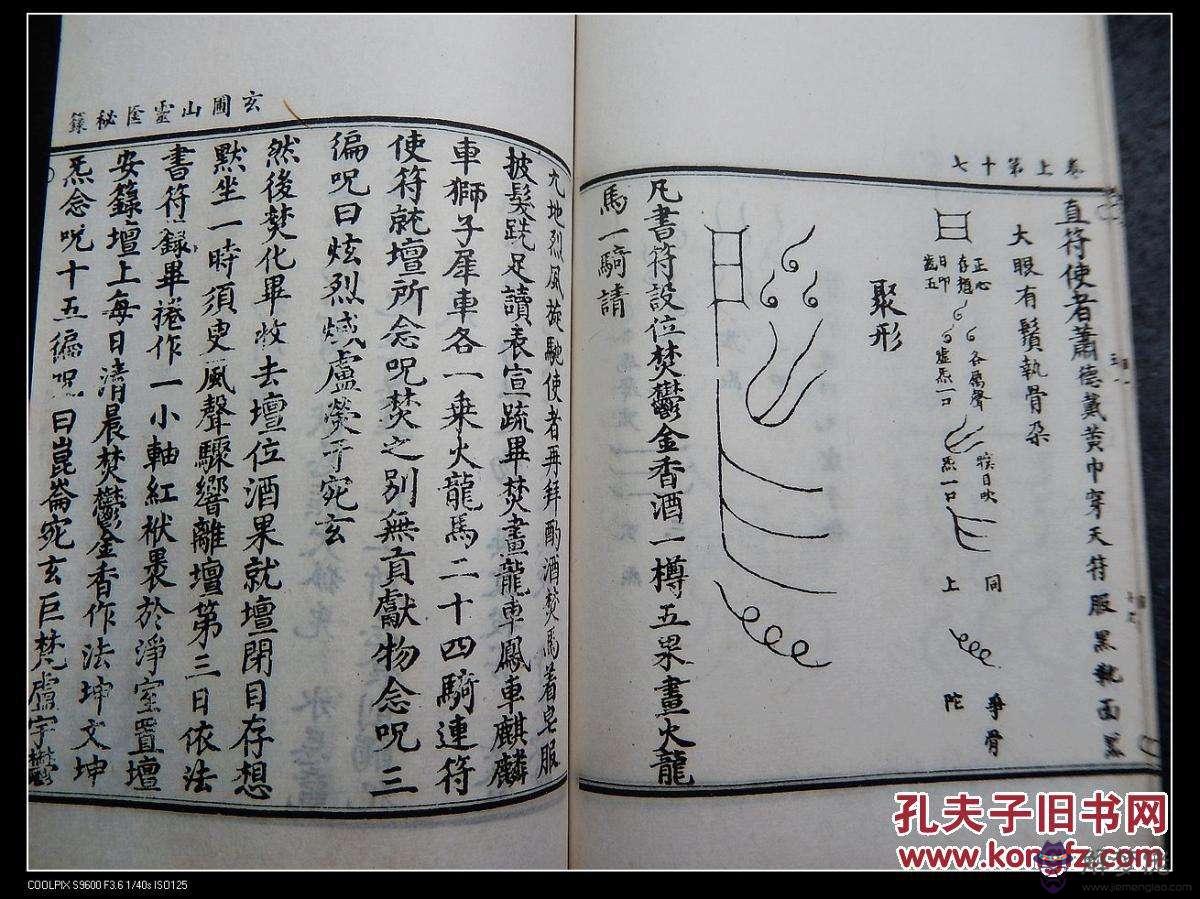 卷上第十七
直符使者蕭德戴黃巾穿天符服黑靴面黑
大眼有鬚執骨朵
正心
存想
日卬
歲五
各屬聲
虛炁一口
炁一口
同
上
爭骨
陀
聚形
凡書符設位焚鬱金香酒一樽五果畫火龍
馬一騎請
玄圃山靈匱秘籙
九地烈風旋馳使者再拜酌酒焚馬著皂服
披髮跣足讀表宣疏畢焚畫龍車鳳車麒麟
車獅子犀車各一乗火龍馬二十四騎連符
使符就壇所念呪焚之別無貢獻物念呪三
徧呪曰炫烈煘盧滎于宛玄
然後焚化畢收去壇位酒果就壇閉目存想
默坐一時須臾風聲驟響離壇第三日依法
書符籙畢捲作一小軸紅袱裹於淨室置壇
安籙壇上每日清晨焚鬱金香作法坤文坤
炁念呪十五徧呪曰崑崙宛玄巨梵盧宇鬱
孔夫子旧书网
www.kongfz.com
解梦佬
www.jiemenglao.com
COOLPIX S9600 F3.6 1/40s ISO125